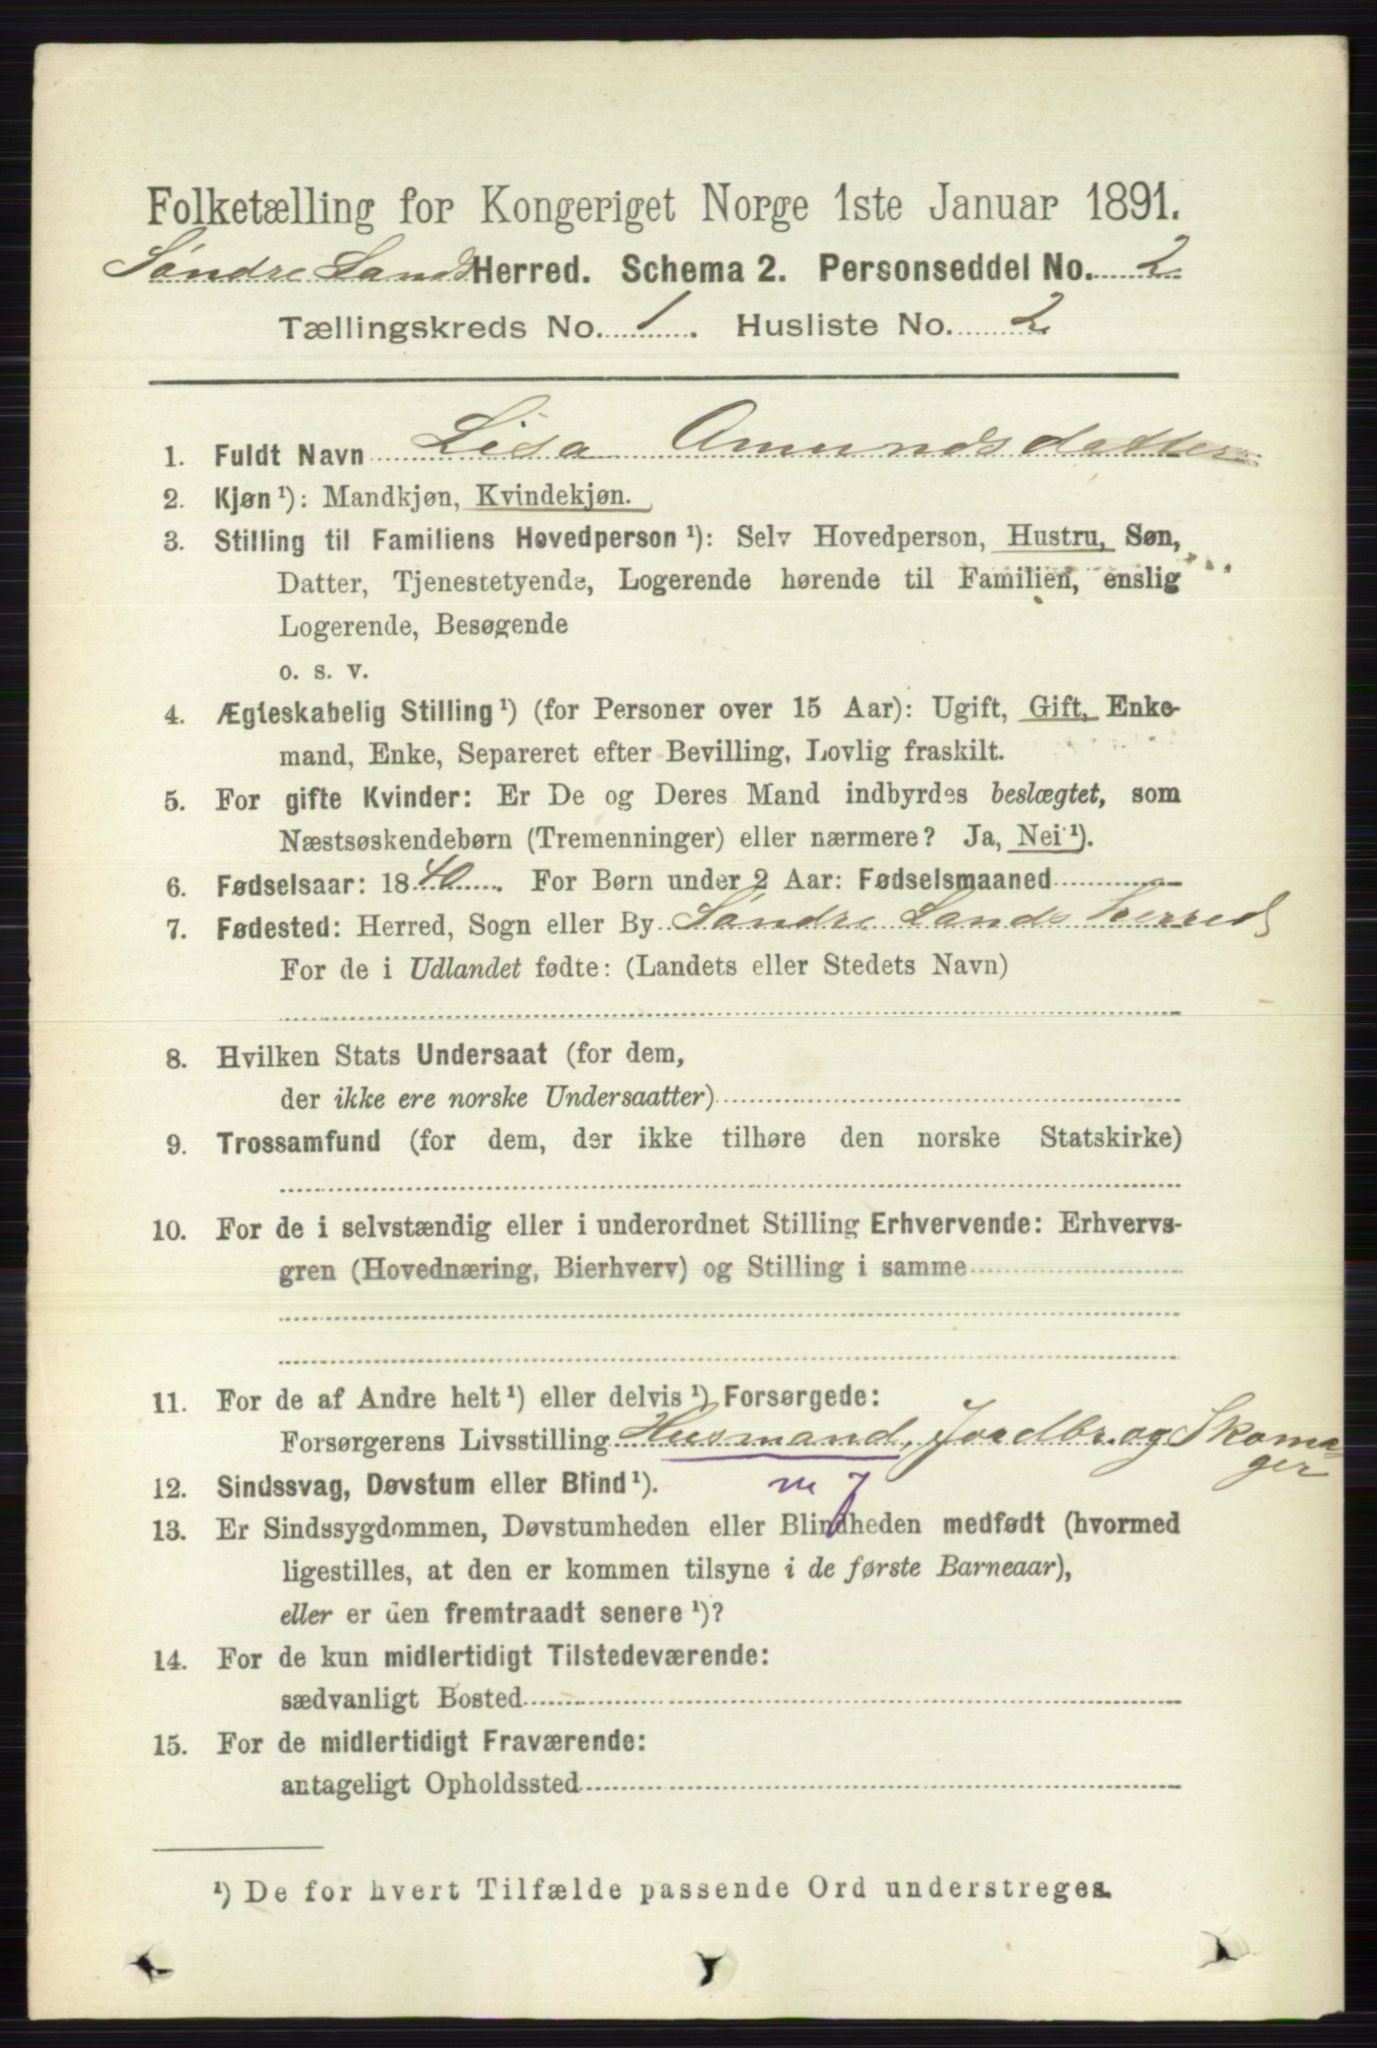 Folketælling for Kongeriget Norge 1ste Januar 1891.
Søndre Lands Herred. Schema 2. Personseddel No. 2
Tællingskreds No. 1. Husliste No. 2
1. Fuldt Navn Lisa Amundsdatter
2. Kjøn¹): Mandkjøn, Kvindekjøn.
3. Stilling til Familiens Hovedperson¹): Selv Hovedperson, Hustru, Søn,
Datter, Tjenestetyende, Logerende hørende til Familien, enslig
Logerende, Besøgende
o. s. v.
4. Ægteskabelig Stilling¹) (for Personer over 15 Aar): Ugift, Gift, Enke-
mand, Enke, Separeret efter Bevilling, Lovlig fraskilt.
5. For gifte Kvinder: Er De og Deres Mand indbyrdes beslægtet, som
Næstsøskendebørn (Tremenninger) eller nærmere? Ja, Nei¹).
6. Fødselsaar: 1840. For Børn under 2 Aar: Fødselsmaaned
7. Fødested: Herred, Sogn eller By Søndre Lands Herred
For de i Udlandet fødte: (Landets eller Stedets Navn)
8. Hvilken Stats Undersaat (for dem,
der ikke ere norske Undersaatter)
9. Trossamfund (for dem, der ikke tilhøre den norske Statskirke)
10. For de i selvstændig eller i underordnet Stilling Erhvervende: Erhvervs-
gren (Hovednæring, Bierhverv) og Stilling i samme
11. For de af Andre helt¹) eller delvis¹) Forsørgede:
Forsørgerens Livsstilling Husmand, Jordbr. og Skoma-
ger
12. Sindssvag, Døvstum eller Blind¹). m j
13. Er Sindssygdommen, Døvstumheden eller Blindheden medfødt (hvormed
ligestilles, at den er kommen tilsyne i de første Barneaar),
eller er den fremtraadt senere¹)?
14. For de kun midlertidigt Tilstedeværende:
sædvanligt Bosted
15. For de midlertidigt Fraværende:
antageligt Opholdssted
¹) De for hvert Tilfælde passende Ord understreges.